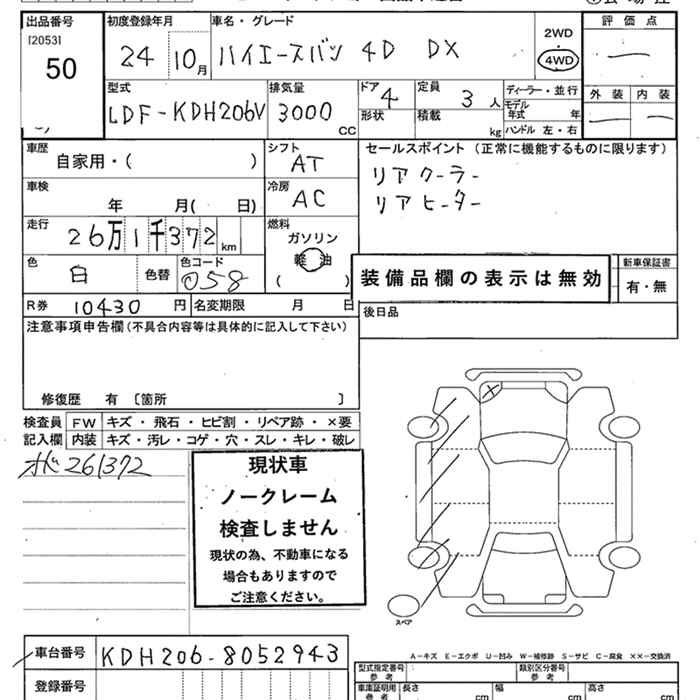 出品番号
[2053]
50
初度登録年月
24 10月
車名・グレード
ハイエースバン 4D DX
2WD
4WD
評価点
外装 内装
型式
LDF-KDH206V
排気量
3000 CC
ドア 4
形状
定員 3人
積載 kg
ディーラー・並行
モデル年式 年
ハンドル 左・右
車歴
自家用・( )
シフト
AT
セールスポイント (正常に機能するものに限ります)
リアクーラー
リアヒーター
車検
年 月( 日)
冷房
AC
走行
26万1千372 km
燃料
ガソリン
軽油
( )
色
白 色替
色コード
058
装備品欄の表示は無効
新車保証書
有・無
R券 10430円
名変期限 月 日
後日品
注意事項申告欄(不具合内容等は具体的に記入して下さい)
修復歴 有 〔箇所 〕
検査員 FW キズ・飛石・ヒビ割・リペア跡・×要
記入欄 内装 キズ・汚レ・コゲ・穴・スレ・キレ・破レ
261372
現状車
ノークレーム
検査しません
現状の為、不動車になる
場合もありますので
ご注意ください。
スペア
A-キズ E-エクボ U-凹み W-補修跡 S-サビ C-腐食 ××-交換済
車台番号 KDH206-8052943
登録番号
型式指定番号
参考
類別区分番号
参考
車庫証明用
参考
長さ cm
幅 cm
高さ cm